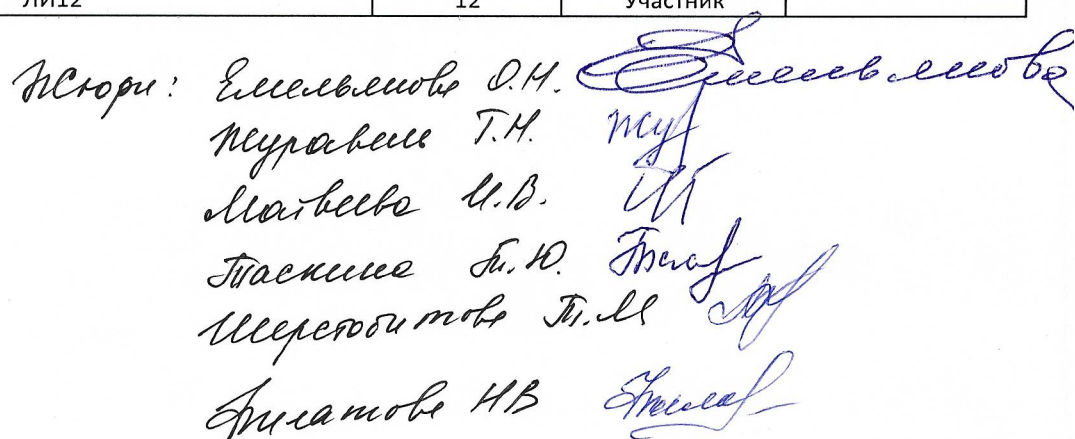 ЛИ12 12 Участник
Жюри: Емельянова О.Н. Емельянова
Журавель Т.Н. Жур
Матвеева И.В.
Таскина Т.Ю.
Шерстобитова Т.М
Филатова НВ